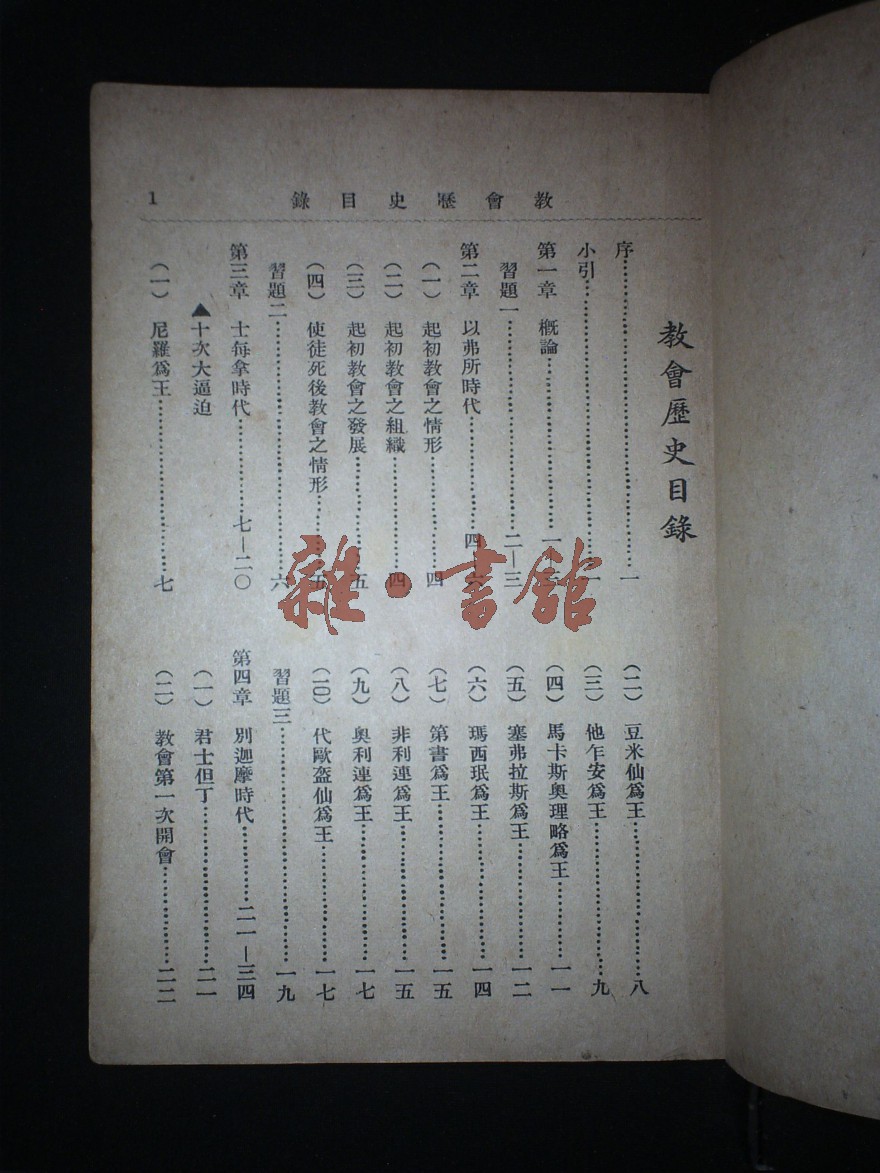 教會歷史目錄
1
教會歷史目錄
序…………一
小引…………一
第一章 概論…………一
習題一…………二—三
第二章 以弗所時代…………四
(一) 起初教會之情形…………四
(二) 起初教會之組織…………四
(三) 起初教會之發展…………五
(四) 使徒死後教會之情形…………五
習題二…………六
第三章 士每拿時代…………七—二〇
▲十次大逼迫
(一) 尼羅爲王…………七
(二) 豆米仙爲王…………八
(三) 他乍安爲王…………九
(四) 馬卡斯奧理略爲王…………一一
(五) 塞弗拉斯爲王…………一二
(六) 瑪西珉爲王…………一四
(七) 第書爲王…………一五
(八) 非利連爲王…………一五
(九) 奧利連爲王…………一七
(一〇) 代歐盔仙爲王…………一七
習題三…………一九
第四章 別迦摩時代…………二一—三四
(一) 君士但丁…………二一
(二) 教會第一次開會…………二二
雜·書館